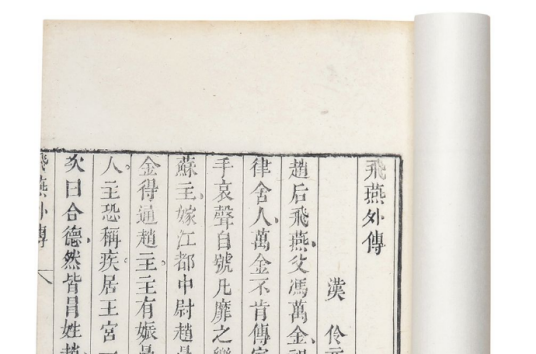 飛燕外傳
漢 伶玄
趙后飛燕父馮萬金
律舍人萬金不肯傳家
手哀聲自號凡靡之樂
蘇主嫁江都中尉趙曼
金得通趙主主有娠曼
人主恐稱疾居王宮一
次曰合德然皆冒姓趙
飛燕外傳